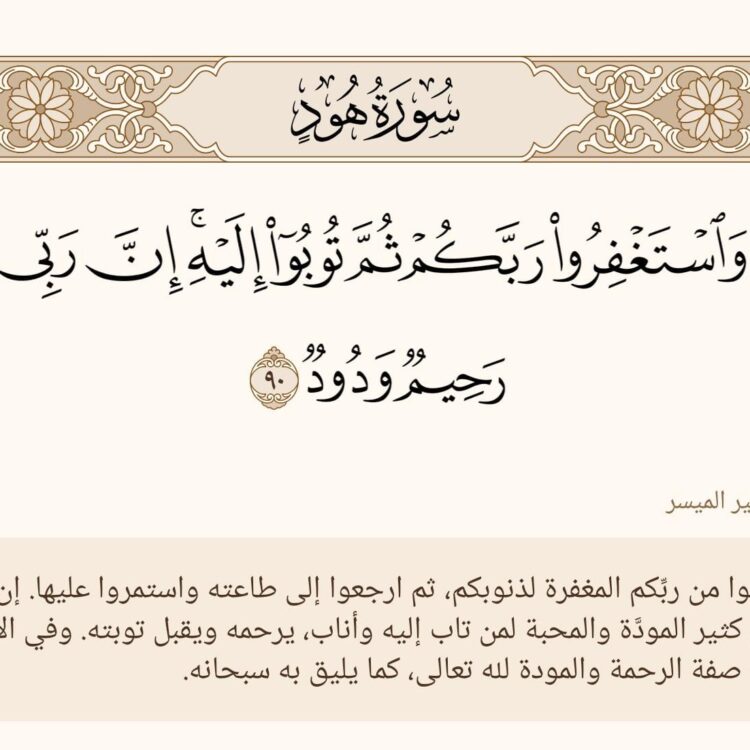 سُورَةُ هُودٍ
وَٱسْتَغْفِرُوا۟ رَبَّكُمْ ثُمَّ تُوبُوٓا۟ إِلَيْهِ ۚ إِنَّ رَبِّى
رَحِيمٌ وَدُودٌ ٩٠
الميسر
من ربِّكم المغفرة لذنوبكم، ثم ارجعوا إلى طاعته واستمروا عليها. إن
كثير المودَّة والمحبة لمن تاب إليه وأناب، يرحمه ويقبل توبته. وفي
صفة الرحمة والمودة لله تعالى، كما يليق به سبحانه.